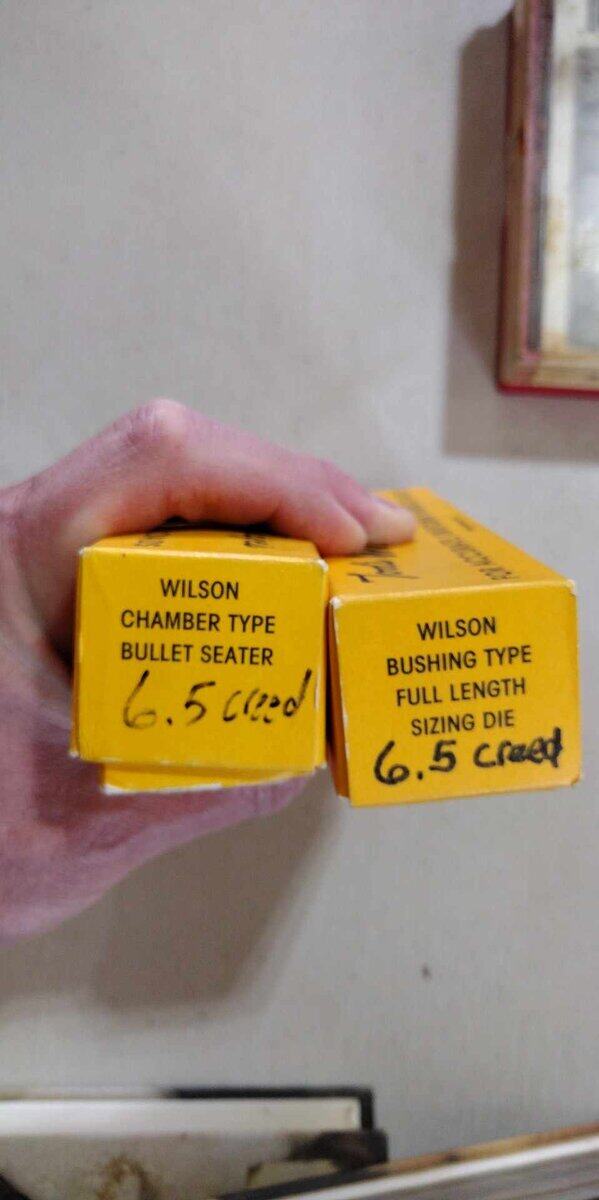 WILSON
CHAMBER TYPE
BULLET SEATER
6.5 creed
WILSON
BUSHING TYPE
FULL LENGTH
SIZING DIE
6.5 creed